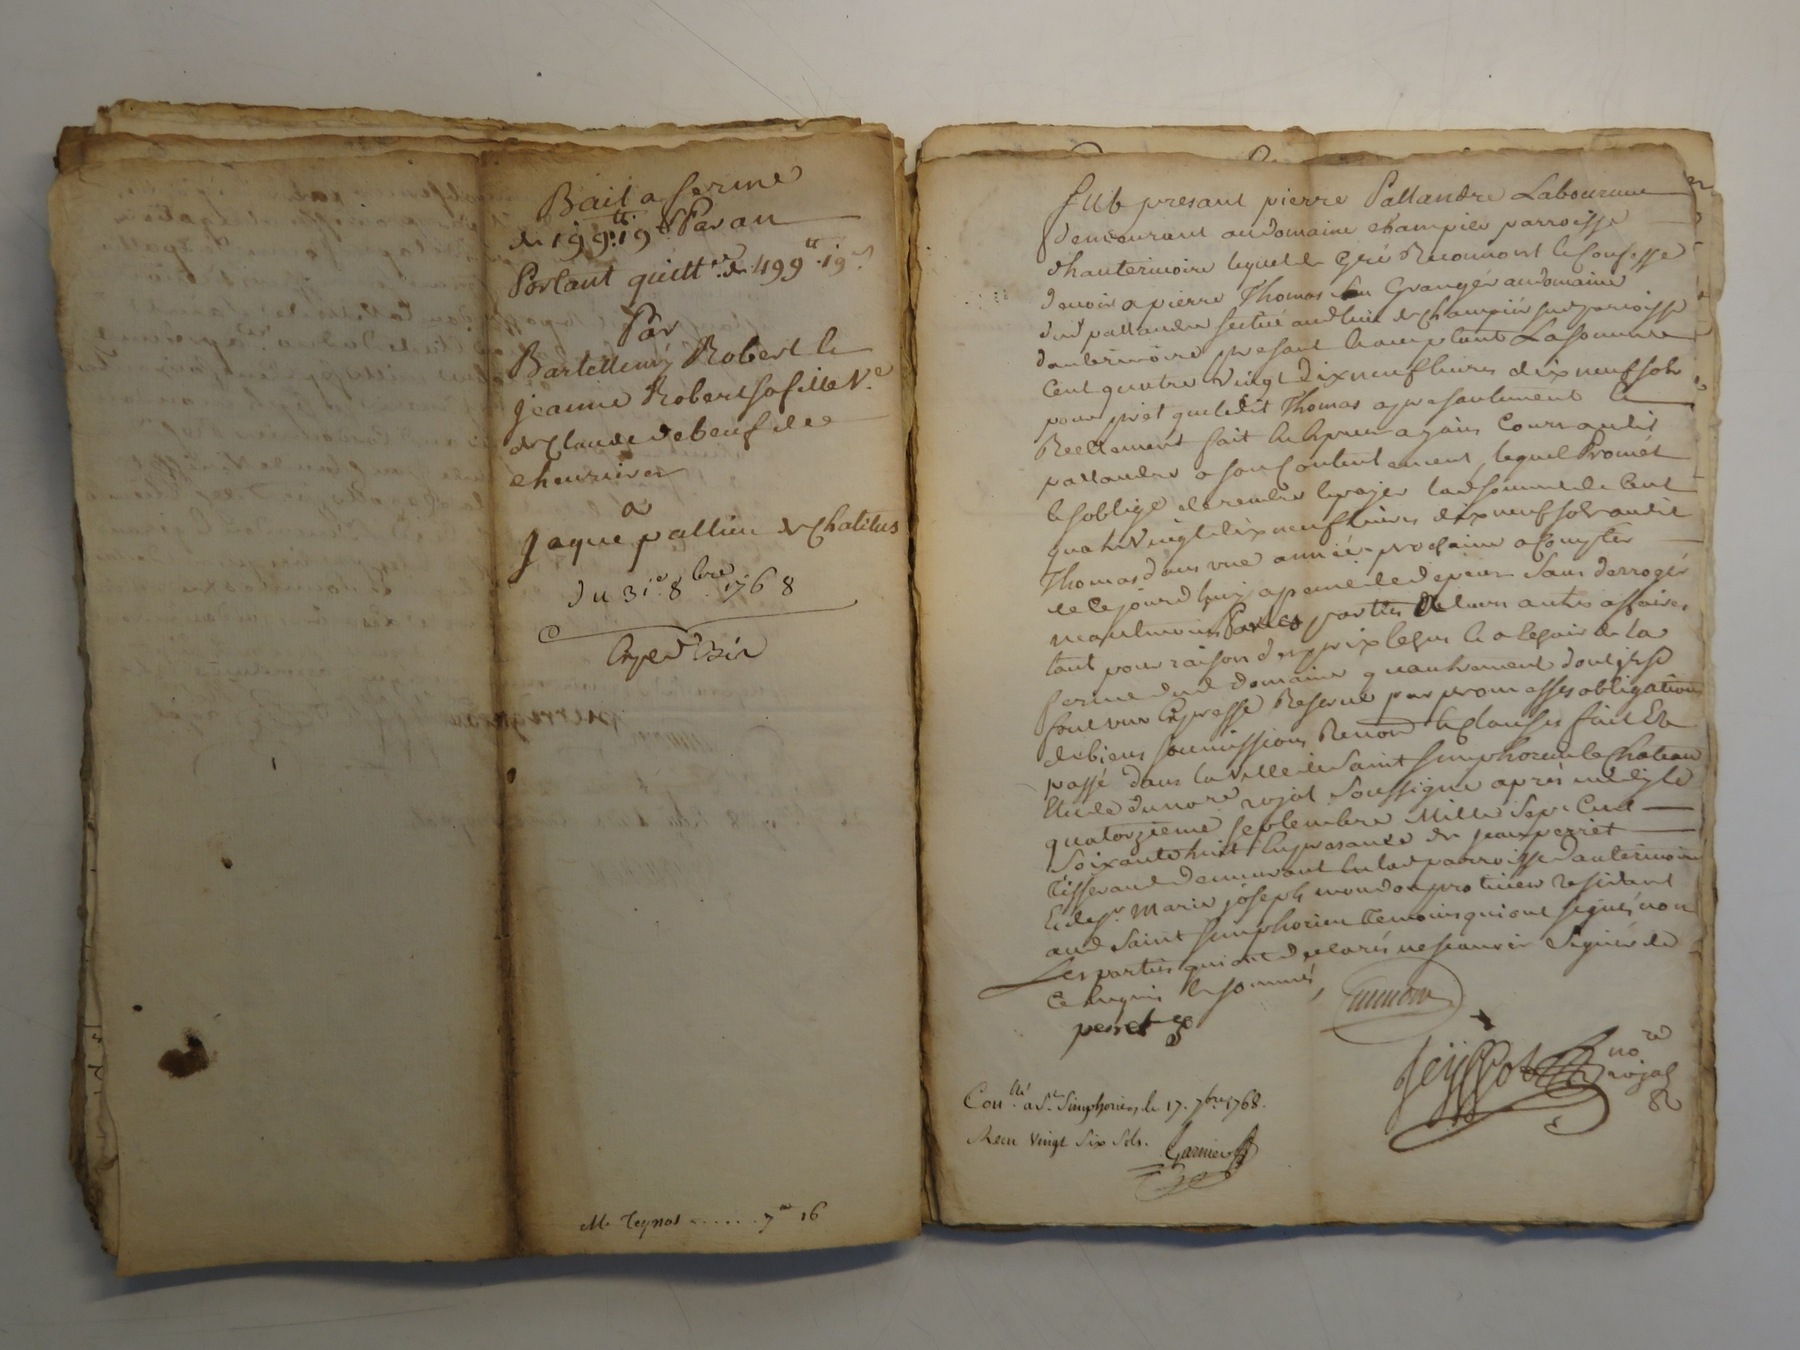 Bail a ferme
de 199tt 19s Par an
Portant quittce de 499tt 19s
Par
Bartellemy Robert et
Jeanne Robert sa fille Ve
de Claude debeuf de
chevrieres
a
Jaque pallieu de Chatelus
du 31e 8bre 1768
Exped
Mr Teynot ...... 7bre 16
fut presant pierre Pallandre Laboureur
demeurant au domaine champier parroisse
dhauterivoire lequel de Gré Reconnoit et Confesse
devoir a pierre Thomas Granger au domaine
dud pallandre scitué aud lieu de Champier susd paroisse
dauterivoire presant acceptant La somme
Cent quatre vingt dix neuf livres dix neuf sols
pour prêt que ledit Thomas a presentement et
Reellement fait en especes ayans Cours audit
pallandre a son Contentement, lequel Promet
et soblige de rendre et payer lad somme de Cent
quatre Vingt dix neuf livres dix neuf sols audit
Thomas dans une année prochaine a Compter
de Ce jourdhuy a peine de depens Sans derroger
neantmoins Par les parties de leurs autres affaires
tant pour raison de
ferme dud domaine quautrement dont
font une Expresse Reserve par promesses obligations
de biens soumissions Renonon et clauses fait Et
passé dans la ville de Saint Simphorien le Chateau
Etude du nore rojal Soussigne après midy le
quatorzieme septembre Mille Sept Cent
Soixante huit En presance de Jean perret
Tisserand demeurant en lad parroisse dauterivoire
Et de sr Marie joseph praticien residant
aud Saint Simphorien Temoins qui ont signés non
Les parties qui ont declarés ne scavoir Signer de
Ce Enquis et sommés
perret
nore
rojal
Conllé a St Simphorien le 17. 7bre 1768.
Recu vingt Six Sols. Garnier